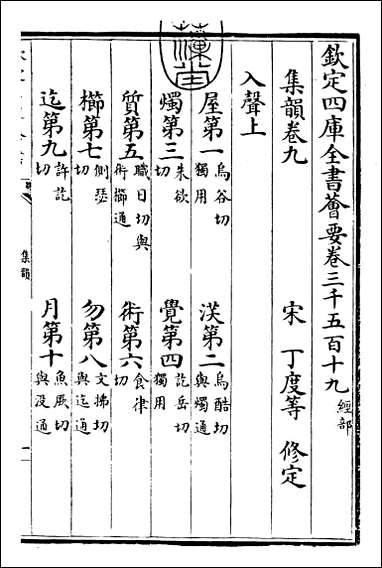 欽定四庫全書薈要卷三千五百十九 經部
集韻卷九
宋 丁度等 修定
入聲上
屋第一 烏谷切獨用 沃第二 烏酷切與燭通
燭第三 朱欲切 覺第四 訖岳切獨用
質第五 職日切與術櫛通 術第六 食律切
櫛第七 側瑟切 勿第八 文拂切與迄通
迄第九 許訖切 月第十 魚厥切與沒通
集韻
一